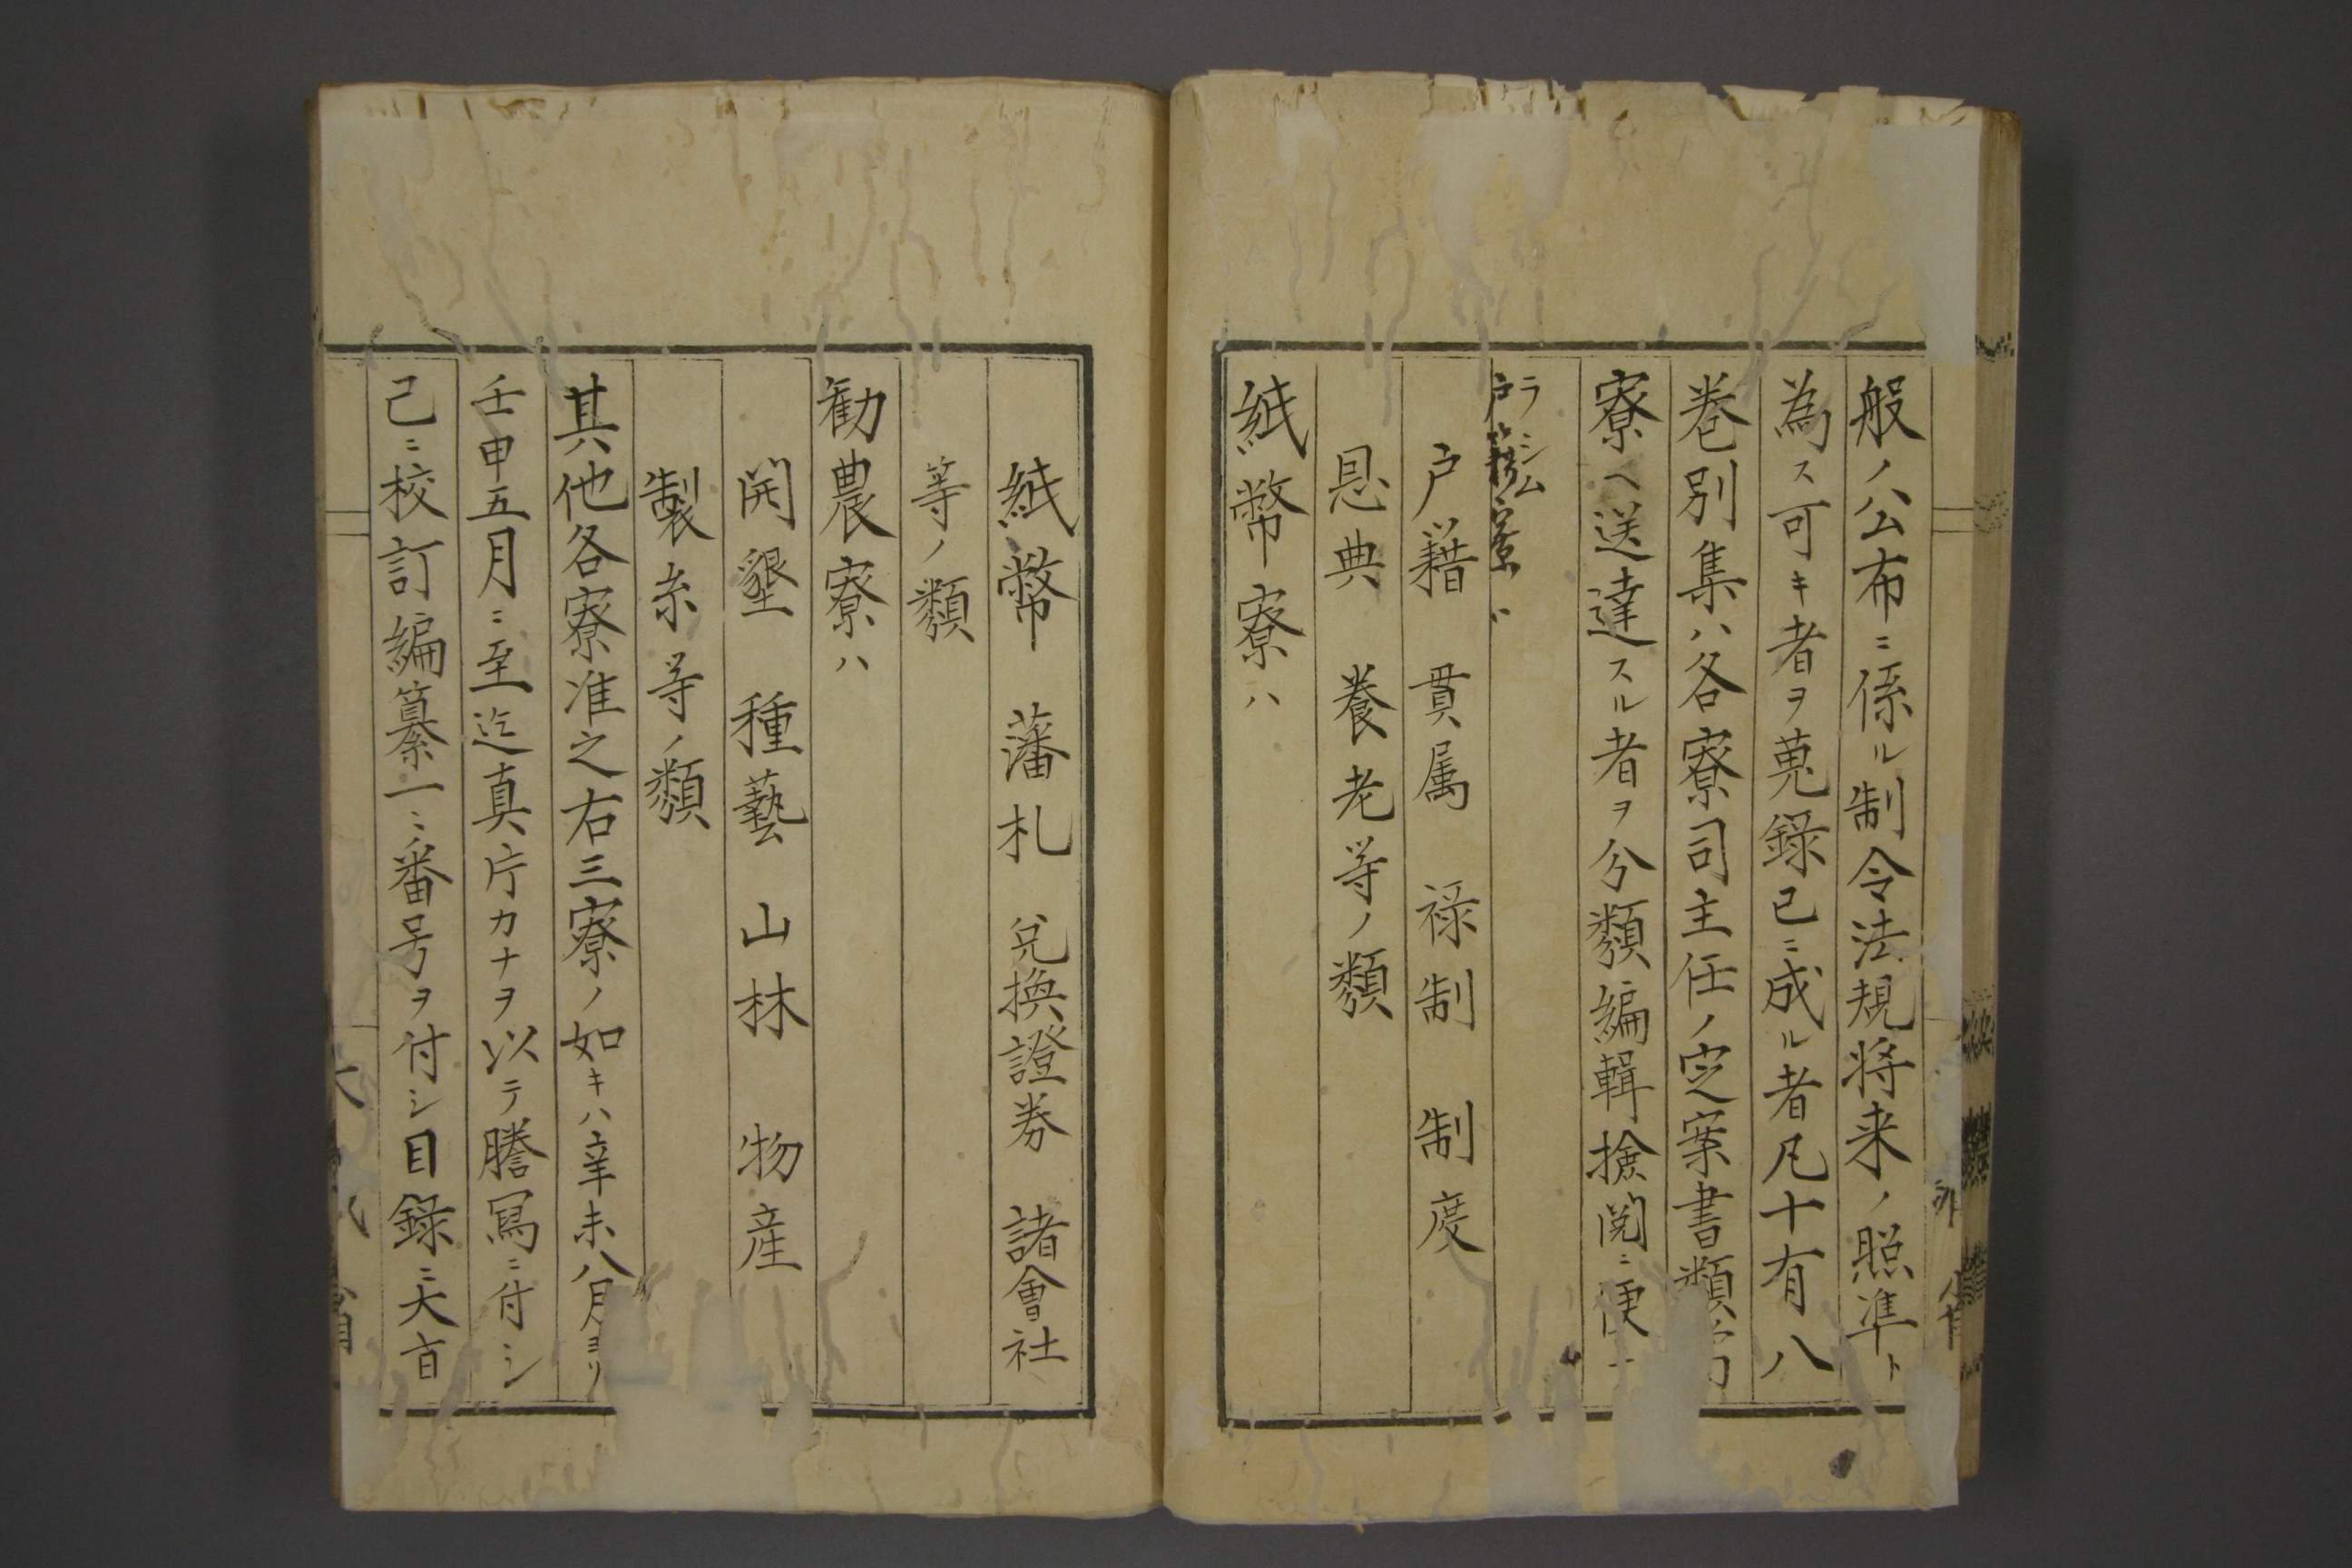 般ノ公布ニ係ル制令法規将来ノ照準ト
為ス可キ者ヲ蒐録已ニ成ル者凡十有八
巻別集ハ各寮司主任ノ定案書類
寮ヘ送達スル者ヲ分類編輯撿閲ニ便
ラシム
戸籍寮ハ
戸籍　貫属　禄制　制度
恩典　養老等ノ類
紙幣寮ハ
紙幣　藩札　兌換證券　諸會社
等ノ類
勧農寮ハ
開墾　種藝　山林　物産
製糸等ノ類
其他各寮准之右三寮ノ如キハ辛未八月ヨリ
壬申五月ニ至迄真片カナヲ以テ謄冩ニ付シ
已ニ校訂編纂一ミ番号ヲ付シ目録ニ大旨